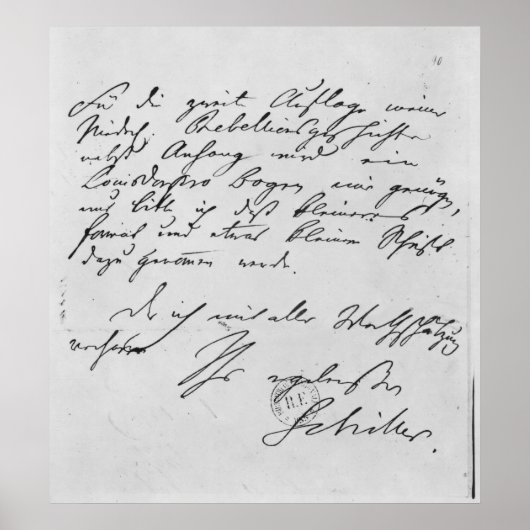 10
Für die zweite Auflage meiner
Niederl. Rebellionsgeschichte
nebst Anhang wird ein
Louisdor pro Bogen mir genügen,
nur bitte ich daß kleineres
format und etwas kleinere Schrift
dazu genommen werde.
Der ich mit aller Werthschätzung
verharre
Ihr ergebenster
Schiller.
R.F.